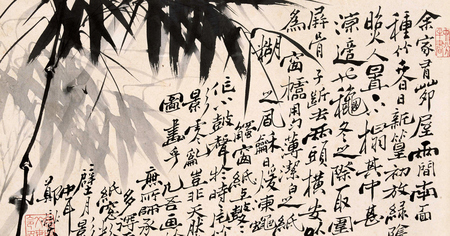 余家有茆屋兩間南面
種竹夏日新篁初放綠陰
照人置一小榻其中甚
涼適也龝冬之際取圍
屏骨子斷去兩頭橫安以
為窗櫺用勻薄潔白之紙
糊之風龢日煖凍蠅
觸窗紙上鼕鼕
作小鼓聲於時一片竹
影零亂豈非天然
圖畫乎凡吾畫
無所師承
多得
紙窗
壁月影
鄭